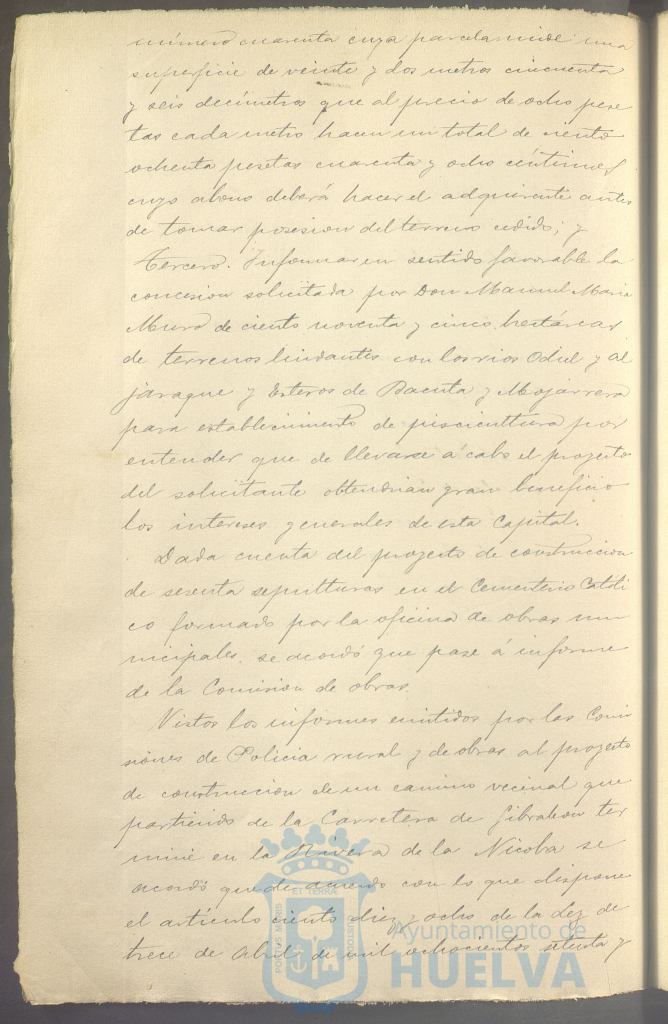 número cuarenta cuya parcela mide una
superficie de veinte y dos metros cincuenta
y seis decímetros que al precio de ocho pese
tas cada metro hacen un total de ciento
ochenta pesetas cuarenta y ocho céntimos
cuyo abono deberá hacer el adquirente antes
de tomar posesion del terreno cedido; y
Tercero. Informar en sentido favorable la
concesion solicitada por Don Manuel Maria
Muro de ciento noventa y cinco hectáreas
de terrenos lindantes con los rios Odiel y al
jaraque y Esteros de Bacuta y Mojarrera
para establecimiento de piscicultura por
entender que de llevarse á cabo el proyecto
del solicitante obtendrian gran beneficio
los intereses generales de esta Capital.
Dada cuenta del proyecto de construccion
de sesenta sepulturas en el Cementerio Católi
co formado por la oficina de obras mu
nicipales, se acordó que pase á informe
de la Comision de obras.
Vistos los informes emitidos por las Comi
siones de Policia rural y de obras al proyecto
de construccion de un camino vecinal que
partiendo de la Carretera de Gibraleon ter
mine en la Rivera de la Nicoba se
acordó que de acuerdo con lo que dispone
el artículo ciento diez y ocho de la Ley de
trece de Abril de mil ochocientos setenta y
PORTUS MARIS ET TERRAE CUSTODIA
Ayuntamiento de
HUELVA